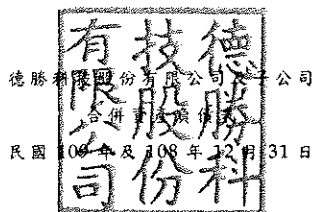 德勝科技股份有限公司及子公司
合併資產負債表
民國 109 年及 108 年 12 月 31 日
德勝科
技股份
有限公司